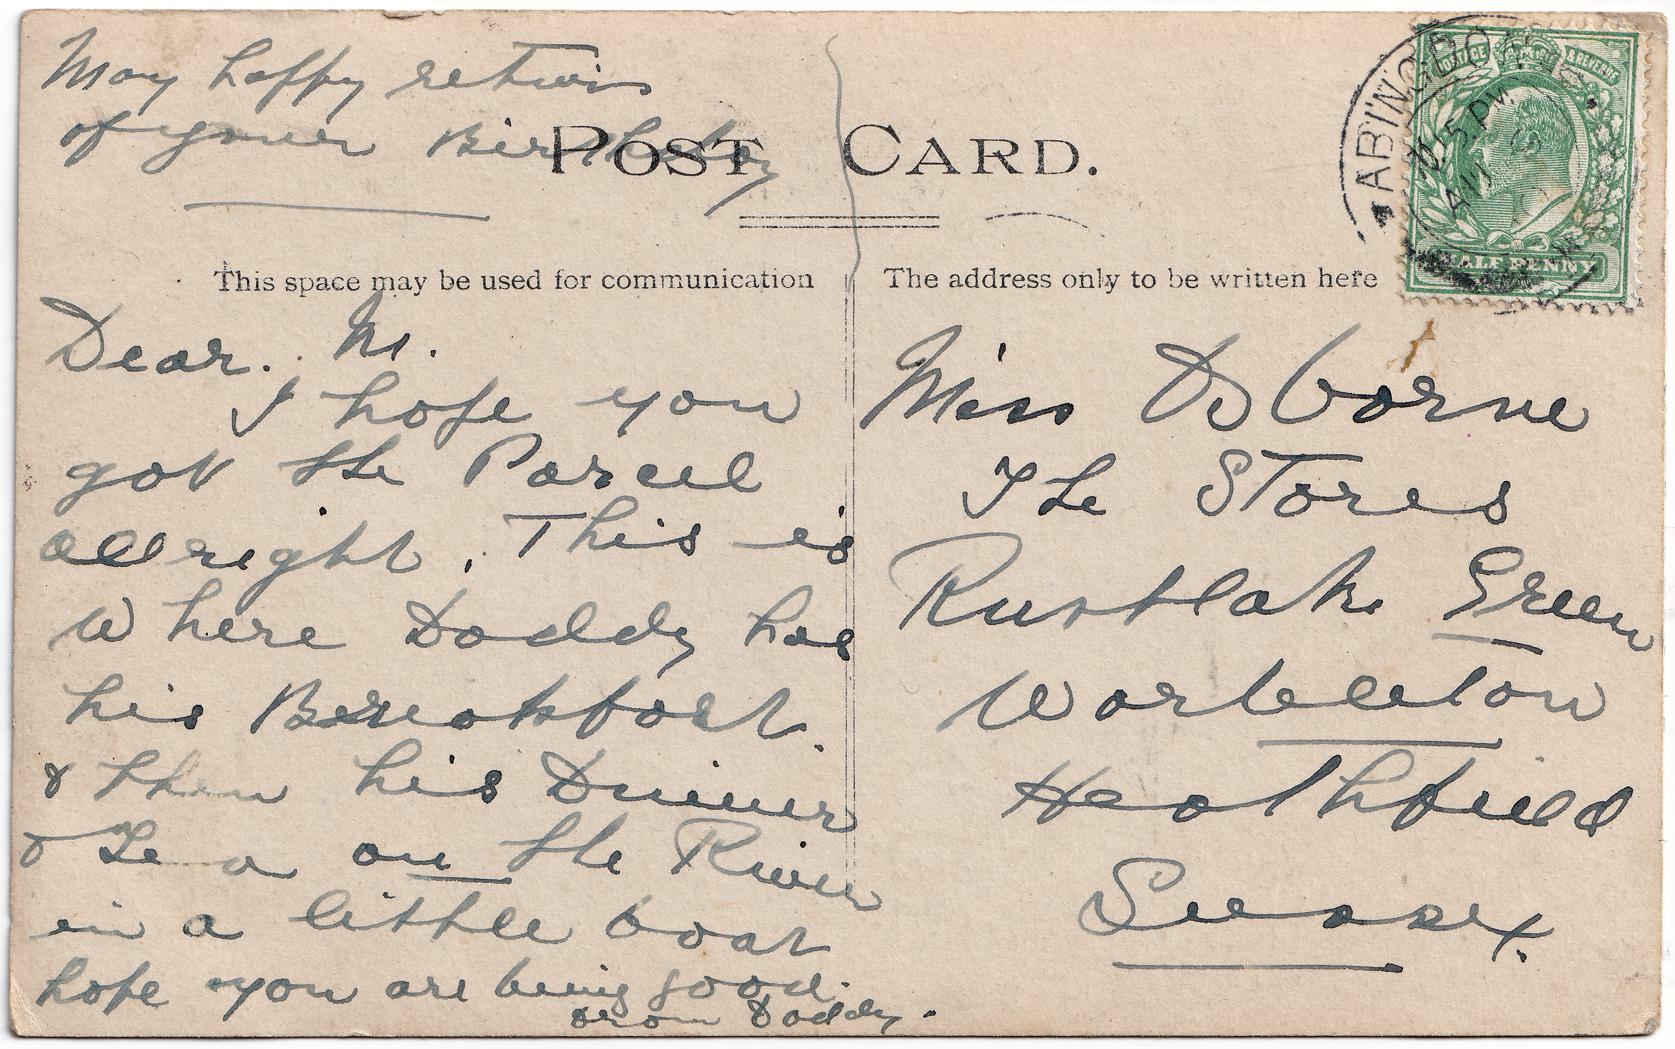 May happy returns
of your Birthday
POST CARD.
This space may be used for communication
The address only to be written here
ABINGDON
.15.PM
AU
POSTAGE & REVENUE
HALF PENNY
Dear. M.
I hope you
got the Parcel
allright. This is
Where Daddy has
his Breakfast.
& then his Dinner
& Tea on the River
in a little boat
hope you are being good.
From Daddy.
Miss Osborne
The Stores
Rustlake Green
Warbleton
Heathfield
Sussex.